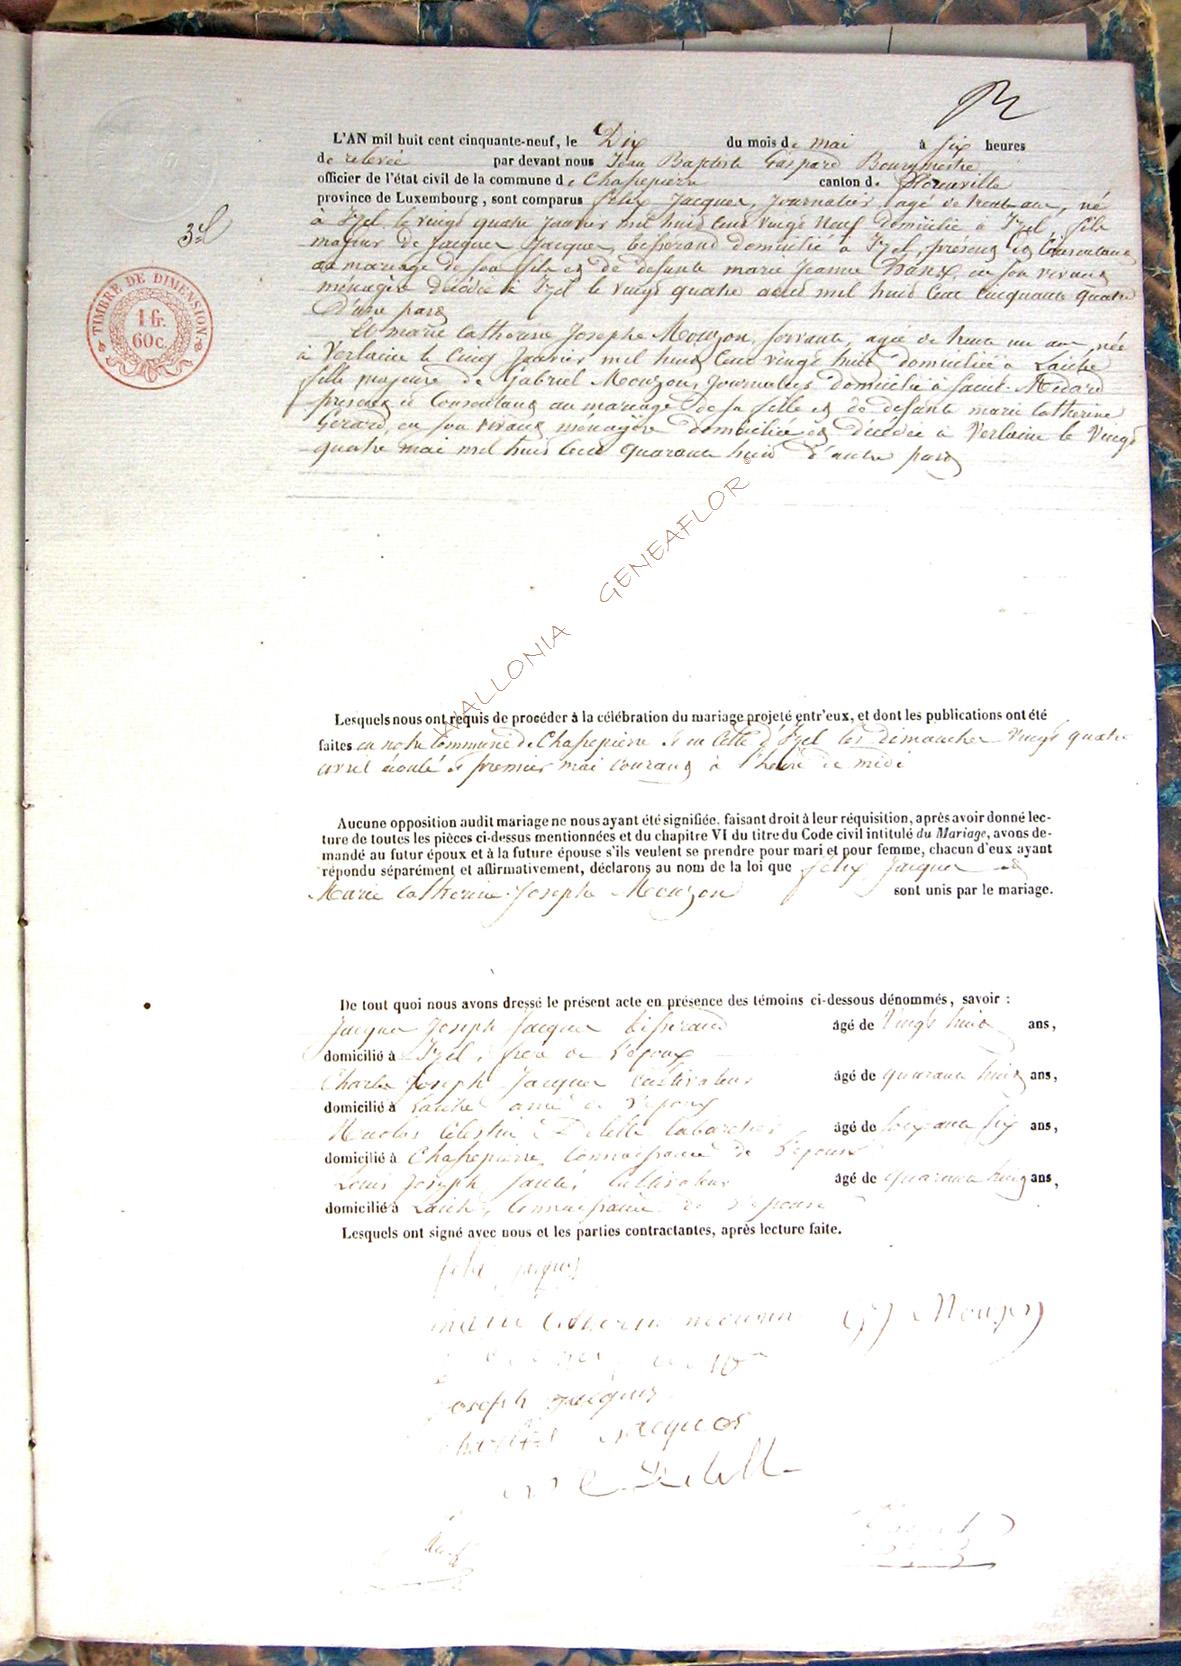 L'AN mil huit cent cinquante-neuf, le Dix du mois de mai à six heures
de relevée par devant nous Jean Baptiste Gaspard Bourgmestre
officier de l'état civil de la commune de Chassepierre canton de Florenville
province de Luxembourg, sont comparus Felix Jacques, Journalier, agé de trente ans, né
à Izel le vingt quatre Janvier mil huit cent vingt neuf domicilié à Izel, fils
3e
majeur de Jacques Jacques tisserand domicilié à Izel, présent et consentant
au mariage de son fils et de defunte marie Jeanne Hanx, en son vivant
ménagère décédée à Izel le vingt quatre mil huit cent cinquante quatre
D'une part
Et marie catherine Josephe Mouzon, servante, agée de trente un ans, née
à Verlaine le cinq Janvier mil huit cent vingt huit domiciliée à Laiche
fille majeure de Gabriel Mouzon, Journalier domicilié à Saint-Médard
présent et consentant au mariage de sa fille et de defunte marie catherine
Gérard, en son vivant ménagère domiciliée et décédée à Verlaine le vingt
quatre mai mil huit cent quarante huit d'autre part
TIMBRE DE DIMENSION
1 fr.
60c.
WALLONIA GENEAFLOR ©
Lesquels nous ont requis de procéder à la célébration du mariage projeté entr'eux, et dont les publications ont été
faites en notre commune de Chassepierre et en celle d'Izel les dimanches vingt quatre
avril écoulé et premier mai courant à l'heure de midi
Aucune opposition audit mariage ne nous ayant été signifiée, faisant droit à leur réquisition, après avoir donné lec-
ture de toutes les pièces ci-dessus mentionnées et du chapitre VI du titre du Code civil intitulé du Mariage, avons de-
mandé au futur époux et à la future épouse s'ils veulent se prendre pour mari et pour femme, chacun d'eux ayant
répondu séparément et affirmativement, déclarons au nom de la loi que Félix Jacques et
Marie Catherine Josephe Mouzon sont unis par le mariage.
De tout quoi nous avons dressé le présent acte en présence des témoins ci-dessous dénommés, savoir :
Jacques Joseph Jacques tisserand âgé de vingt huit ans,
domicilié à Izel, frère de l'époux
Charles Joseph Jacques cultivateur âgé de quarante huit ans,
domicilié à Laiche ami de l'époux
Nicolas Célestin Delelle Cabaretier âgé de soixante six ans,
domicilié à Chassepierre, connaissance de l'épouse
Louis Joseph cultivateur âgé de quarante ans,
domicilié à Laiche, connaissance de l'épouse
Lesquels ont signé avec nous et les parties contractantes, après lecture faite.
felix jacques
marie catherine mouzon GJ Mouzon
joseph jacques
charles jacques
N C Delelle